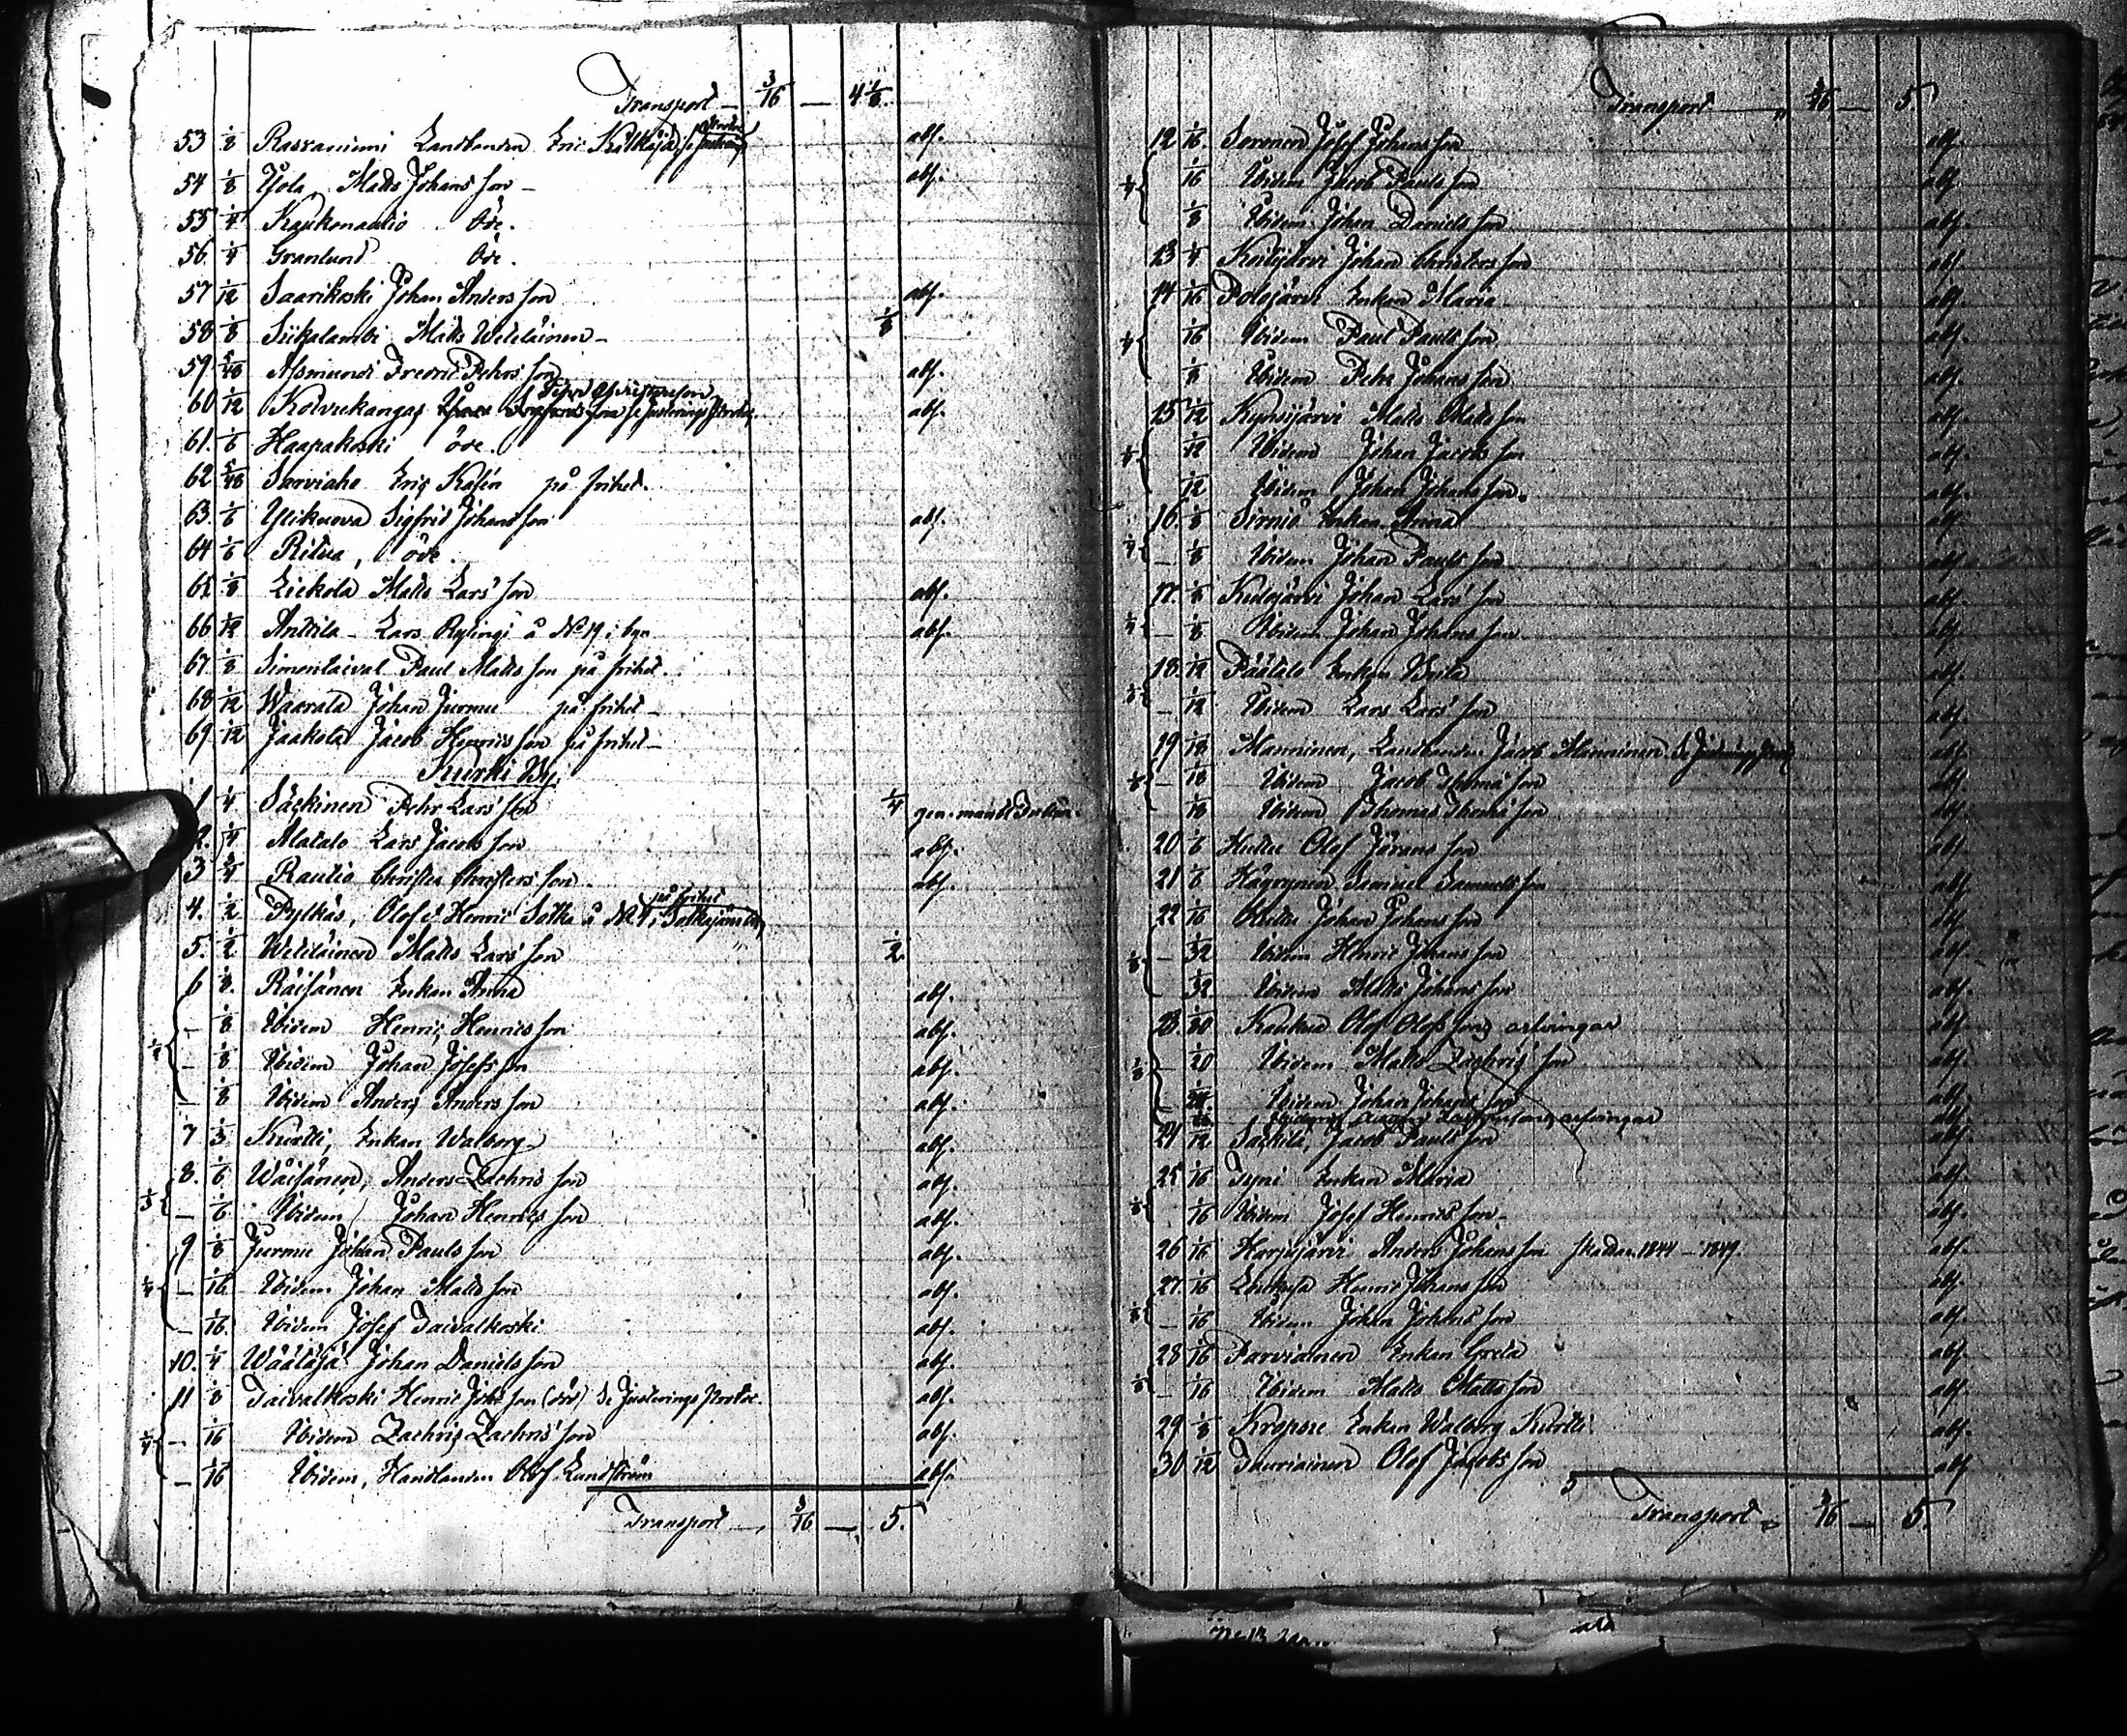 Transport — 3/16 — 4 1/8.
53 1/8 Rasvaniemi Landbonden Eric Kälkäjä, se abs.
54 1/8 Yola, Matts Johansson — abs.
55 1/4 Kaukonautio Öde.
56 1/4 Granlund Öde.
57 1/12 Saarikoski Johan Andersson abs.
58 1/8 Siikalambi Matts Weteläinen — 1/8
59 5/48 Asmundi Fredric Pehrsson abs.
Pehr Christersson
60 1/12 Koivukangas se Justerings Protoc. abs.
61. 1/6 Haapakoski öde.
62 5/48 Sarviaho Eric Kasén på frihet.
63. 1/6 Ylikuova Sigfrid Johansson abs.
64 1/6 Ritva, öde.
65 1/8 Liekola Matts Larsson abs.
66 1/12 Anttila — Lars Rytingi å No 19 i byn abs.
67 1/8 Simontaival Paul Mattsson på frihet.
68 1/12 Waarala Johan Jurmu på frihet —
69 1/12 Jaakola Jacob Henricsson på frihet —
Kurki By.
1 1/4 Säckinen Pehr Larsson 1/4
2. 1/4 Matalo Lars Jacobsson abs.
3 3/4 Rautio Christer Christersson. abs.
på frihet
4. 1/2 Pylkäs, Olof & Henric Sotka å No 4 i
5. 1/2 Weteläinen Matts Larsson 1/2.
6 1/8. Räisänen Enkan Anna abs.
— 1/8 Ibidem Henric Henricsson abs.
— 1/8 Ibidem Johan Josefsson abs.
— 1/8 Ibidem Anders Andersson abs.
7 1/3 Kurtti, Enkan Walborg abs.
8. 1/6 Wäisänen, Anders Zachrisson abs.
1/3 — 1/6 Ibidem Johan Henricsson abs.
9 1/8 Jurmu Johan Paulsson abs.
1/4 — 1/16 Ibidem Johan Mattsson abs.
— 1/16. Ibidem Josef Taivalkoski abs.
10. 1/4 Määtäjä Johan Danielsson abs.
11 1/8 Taivalkoski Henric Johsson (död) se Justerings Protoc. abs.
1/4 — 1/16 Ibidem Zachris Zachrisson abs.
— 1/16 Ibidem, Handlanden Olof Lundström abs.
Transport — 3/16 — 5.
Transport „ 3/16 — 5
12 1/16. Soronen Josef Johansson abs.
1/4 1/16 Ibidem Jacob Paulsson abs.
1/8 Ibidem Johan Danielsson abs.
13 1/4 Koitijärvi Johan Christersson abs.
14 1/16 Polojärvi Enkan Maria abs.
1/4 1/16 Ibidem Paul Paulsson abs.
1/8 Ibidem Pehr Johansson abs.
15 1/12 Kynsijärvi Matts Mattsson abs.
1/4 1/12 Ibidem Johan Jacobsson abs.
1/12 Ibidem Johan Johansson. abs.
16. 1/8 Sirniö Enkan Anna abs.
1/4 — 1/8 Ibidem Johan Paulsson abs.
17. 1/8 Johan Larsson abs.
1/4 — 1/8 Ibidem Johan Johansson abs.
18. 1/12 Päätalo Enkan Brita abs.
— 1/12 Ibidem Lars Larsson abs.
19 1/18 Manninen, Landbonden Jacob Manninen abs.
1/6 — 1/18 Ibidem Jacob Thomasson abs.
1/18 Ibidem Thomas Thomasson abs.
20 1/6 Huttu Olof Göransson abs.
21 1/6 Häyrynen Samuel Samuelsson abs.
22 1/16 Huttu Johan Johansson abs.
1/8 — 1/32 Ibidem Henric Johansson abs.
1/32 Ibidem Matts Johansson abs.
23. 1/20 Kaukua Olof Olofssons arfvingar abs.
1/8 — 1/20 Ibidem Matts Zachrisson abs.
Ibidem Johan Johansson abs.
arfvingar abs.
24 1/12 Säckilä, Jacob Paulsson abs.
25 1/16 Tyni Enkan Maria abs.
1/8 1/16 Ibidem Josef Henricsson abs.
26 1/16 Harjujärvi Anders Johansson skattar. 1844 — 1849. abs.
27. 1/16 Henric Johansson abs.
1/8 — 1/16 Ibidem Johan Johansson abs.
28 1/16 Parviainen Enkan Greta abs.
1/8 — 1/16 Ibidem Matts Mattsson abs.
29 1/8 Kropsu Enkan Walborg Kurtti. abs.
30 1/12 Tauriainen Olof Jacobsson abs.
Transport 3/16 — 5.